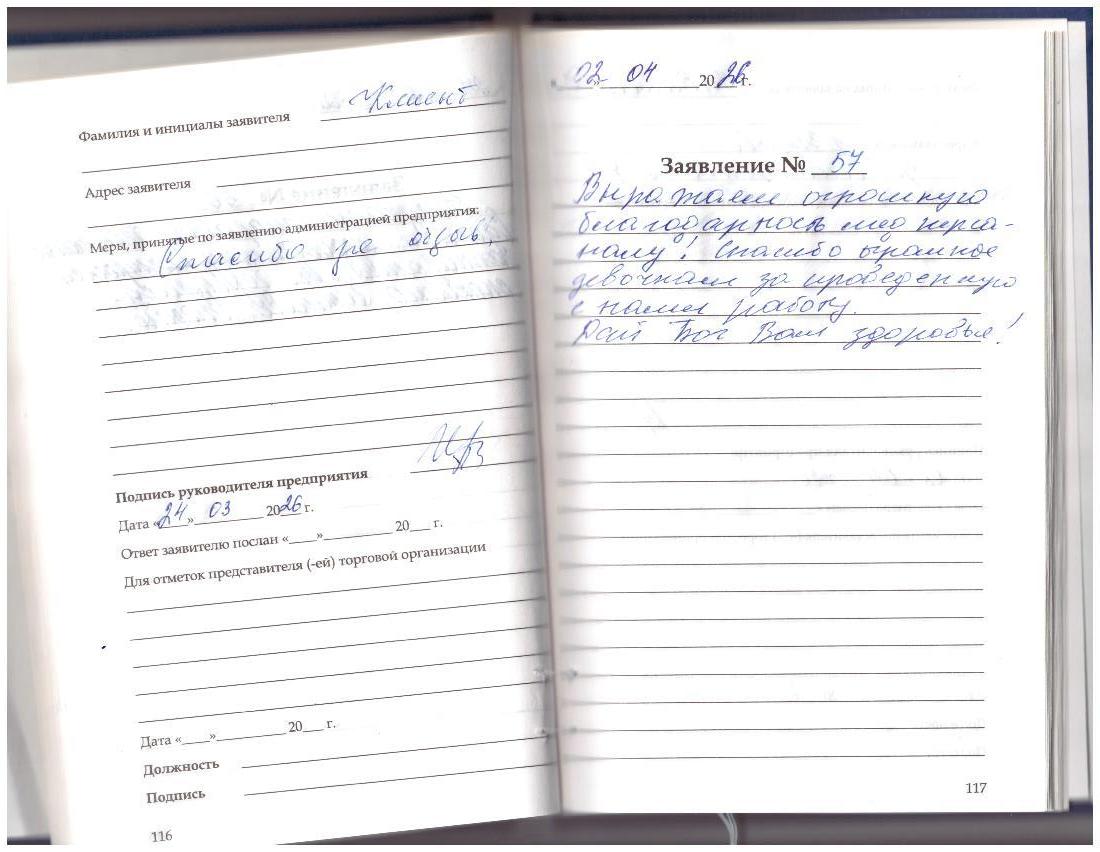 Клиент
Фамилия и инициалы заявителя
Адрес заявителя
Меры, принятые по заявлению администрацией предприятия:
Спасибо за отзыв!
Подпись руководителя предприятия
Дата «24» 03 2026 г.
Ответ заявителю послан «____»__________ 20___ г.
Для отметок представителя (-ей) торговой организации
Дата «____»__________ 20___ г.
Должность
Подпись
116
02 04 2026 г.
Заявление № 57
Выражаем огромную
благодарность мед персо-
налу! Спасибо огромное
девочкам за проведенную
с нами работу.
Дай Бог Вам здоровья!
117